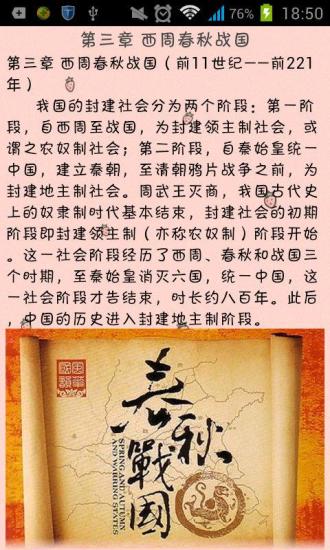 76% 18:50
第三章 西周春秋战国
第三章 西周春秋战国（前11世纪——前221
年）
我国的封建社会分为两个阶段：第一阶
段，自西周至战国，为封建领主制社会，或
谓之农奴制社会；第二阶段，自秦始皇统一
中国，建立秦朝，至清朝鸦片战争之前，为
封建地主制社会。周武王灭商，我国古代史
上的奴隶制时代基本结束，封建社会的初期
阶段即封建领主制（亦称农奴制）阶段开始
。这一社会阶段经历了西周、春秋和战国三
个时期，至秦始皇消灭六国，统一中国，这
一社会阶段才告结束，时长约八百年。此后
，中国的历史进入封建地主制阶段。
春秋戰國
SPRING AND AUTUMN
AND WARRING STATES